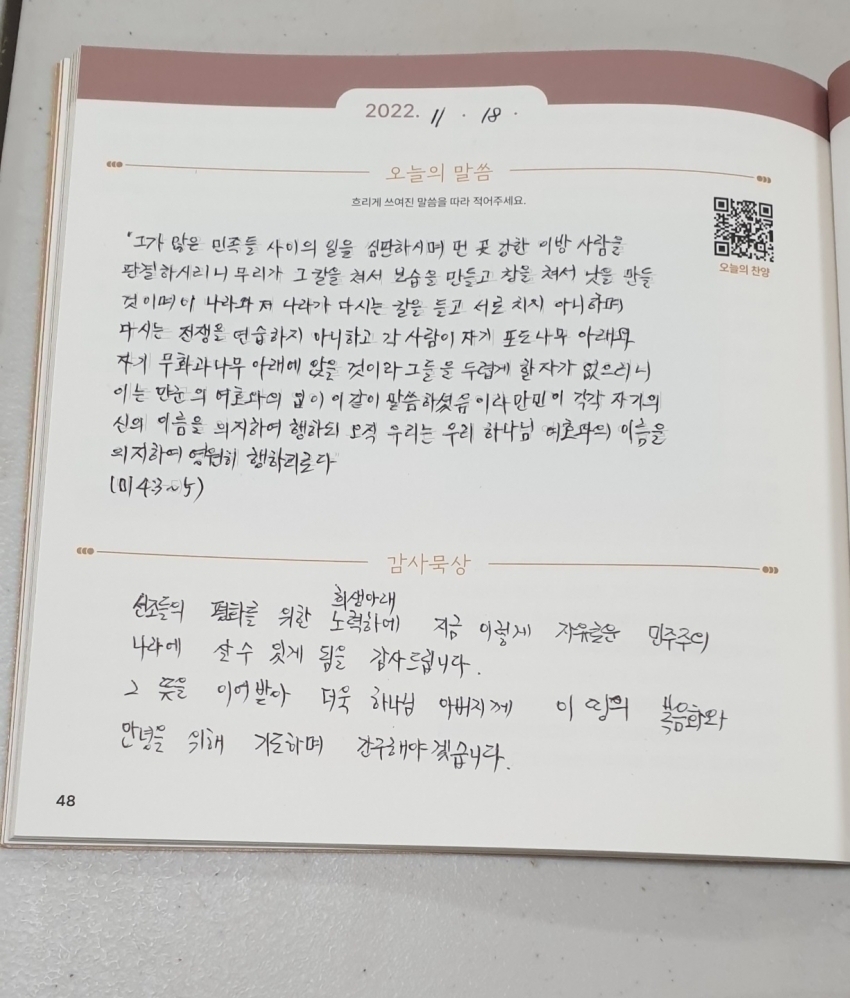 2022. 11 · 18 ·
오늘의 말씀
흐리게 쓰여진 말씀을 따라 적어주세요.
오늘의 찬양
"그가 많은 민족들 사이의 일을 심판하시며 먼 곳 강한 이방 사람을
판결하시리니 무리가 그 칼을 쳐서 보습을 만들고 창을 쳐서 낫을 만들
것이며 이 나라와 저 나라가 다시는 칼을 들고 서로 치지 아니하며
다시는 전쟁을 연습하지 아니하고 각 사람이 자기 포도나무 아래와
자기 무화과나무 아래에 앉을 것이라 그들을 두렵게 할 자가 없으리니
이는 만군의 여호와의 입이 이같이 말씀하셨음이라 만민이 각각 자기의
신의 이름을 의지하여 행하되 오직 우리는 우리 하나님 여호와의 이름을
의지하여 영원히 행하리로다
(미 4:3~5)
감사묵상
희생아래
선조들의 평화를 위한 노력하에 지금 이렇게 민주주의
나라에 살 수 있게 됨을 감사드립니다.
그 뜻을 이어받아 더욱 하나님 아버지께 이 땅의 복음화와
안녕을 위해 기도하며 간구해야겠습니다.
48